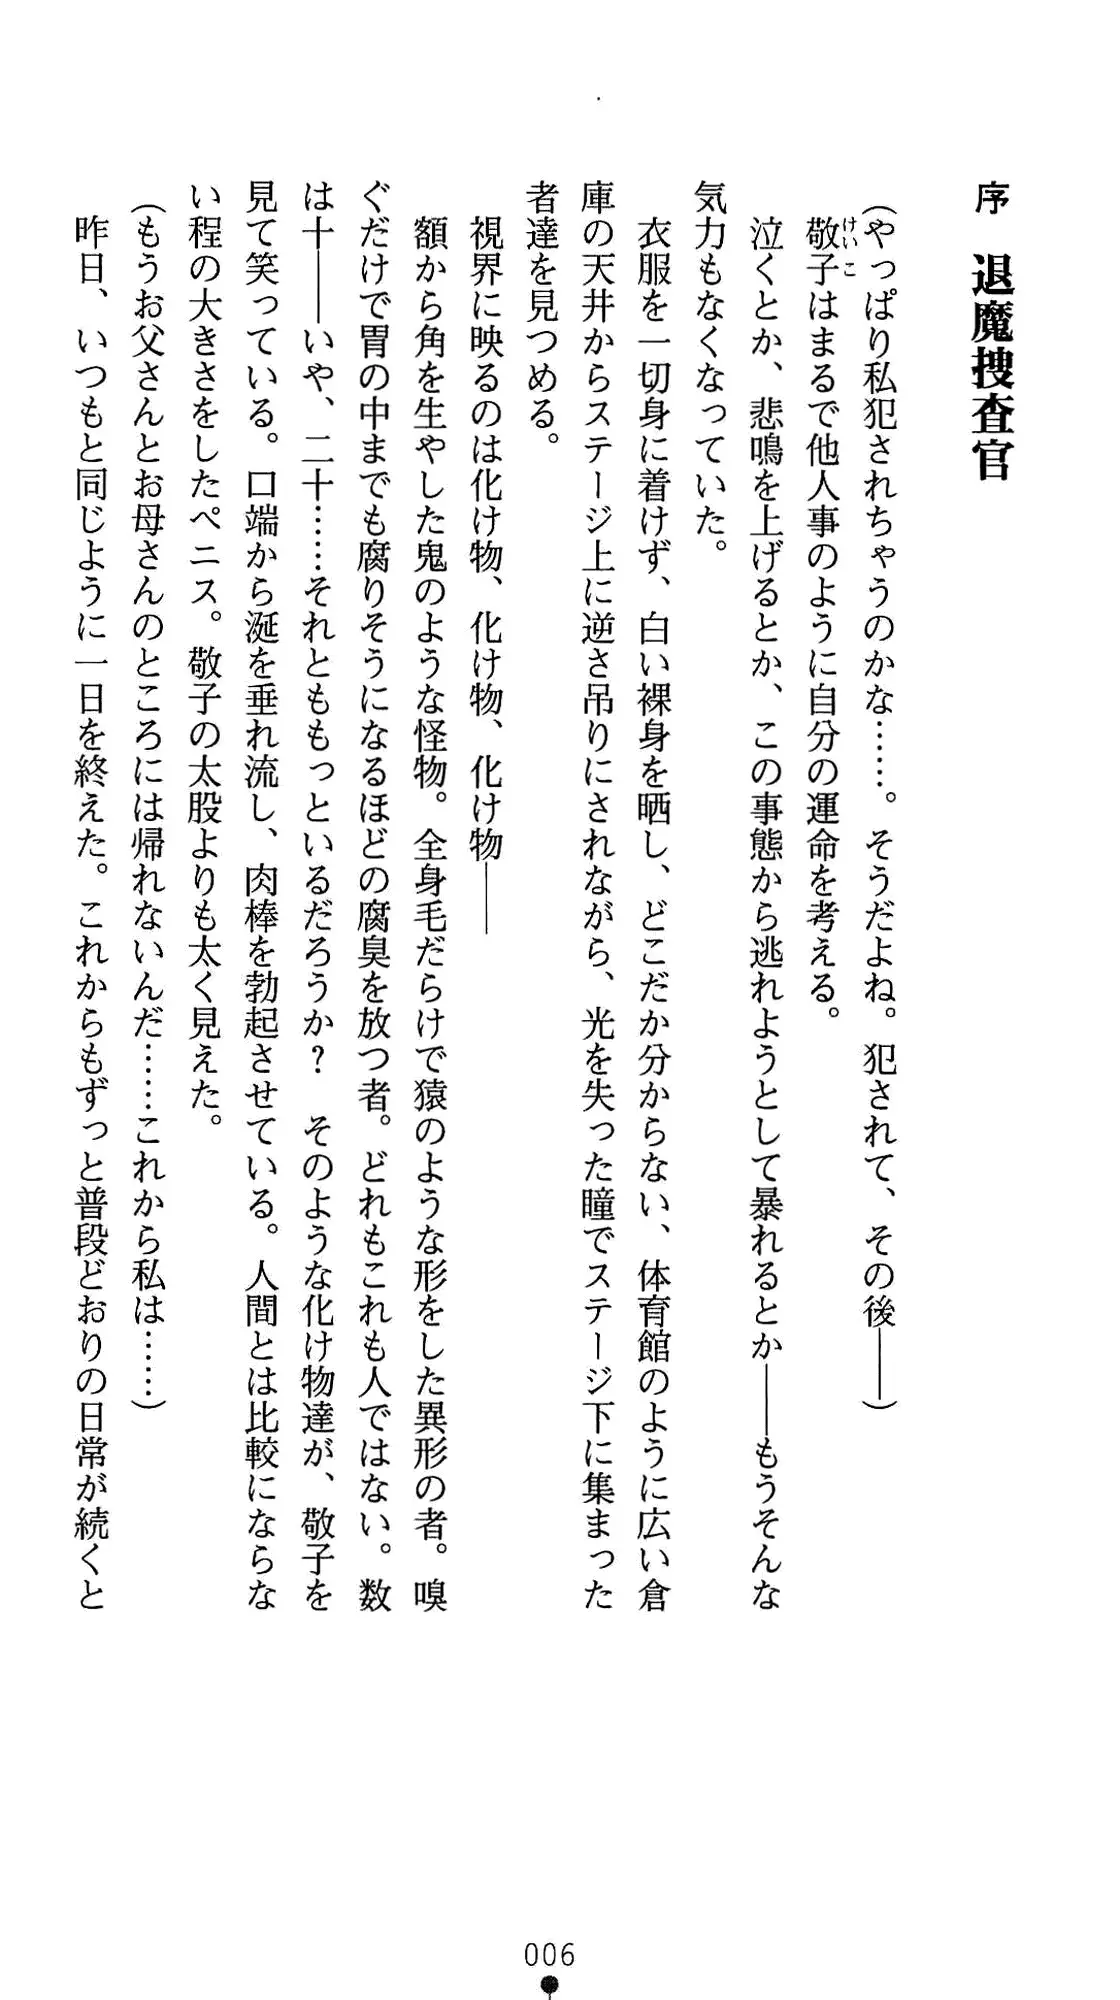 序　退魔捜査官
（やっぱり私犯されちゃうのかな……。そうだよね。犯されて、その後――）
敬子はまるで他人事のように自分の運命を考える。
けいこ
泣くとか、悲鳴を上げるとか、この事態から逃れようとして暴れるとか――もうそんな
気力もなくなっていた。
衣服を一切身に着けず、白い裸身を晒し、どこだか分からない、体育館のように広い倉
庫の天井からステージ上に逆さ吊りにされながら、光を失った瞳でステージ下に集まった
者達を見つめる。
視界に映るのは化け物、化け物、化け物――
額から角を生やした鬼のような怪物。全身毛だらけで猿のような形をした異形の者。嗅
ぐだけで胃の中までも腐りそうになるほどの腐臭を放つ者。どれもこれも人ではない。数
は十――いや、二十……それとももっといるだろうか？　そのような化け物達が、敬子を
見て笑っている。口端から涎を垂れ流し、肉棒を勃起させている。人間とは比較にならな
い程の大きさをしたペニス。敬子の太股よりも太く見えた。
（もうお父さんとお母さんのところには帰れないんだ……これから私は……）
昨日、いつもと同じように一日を終えた。これからもずっと普段どおりの日常が続くと
006